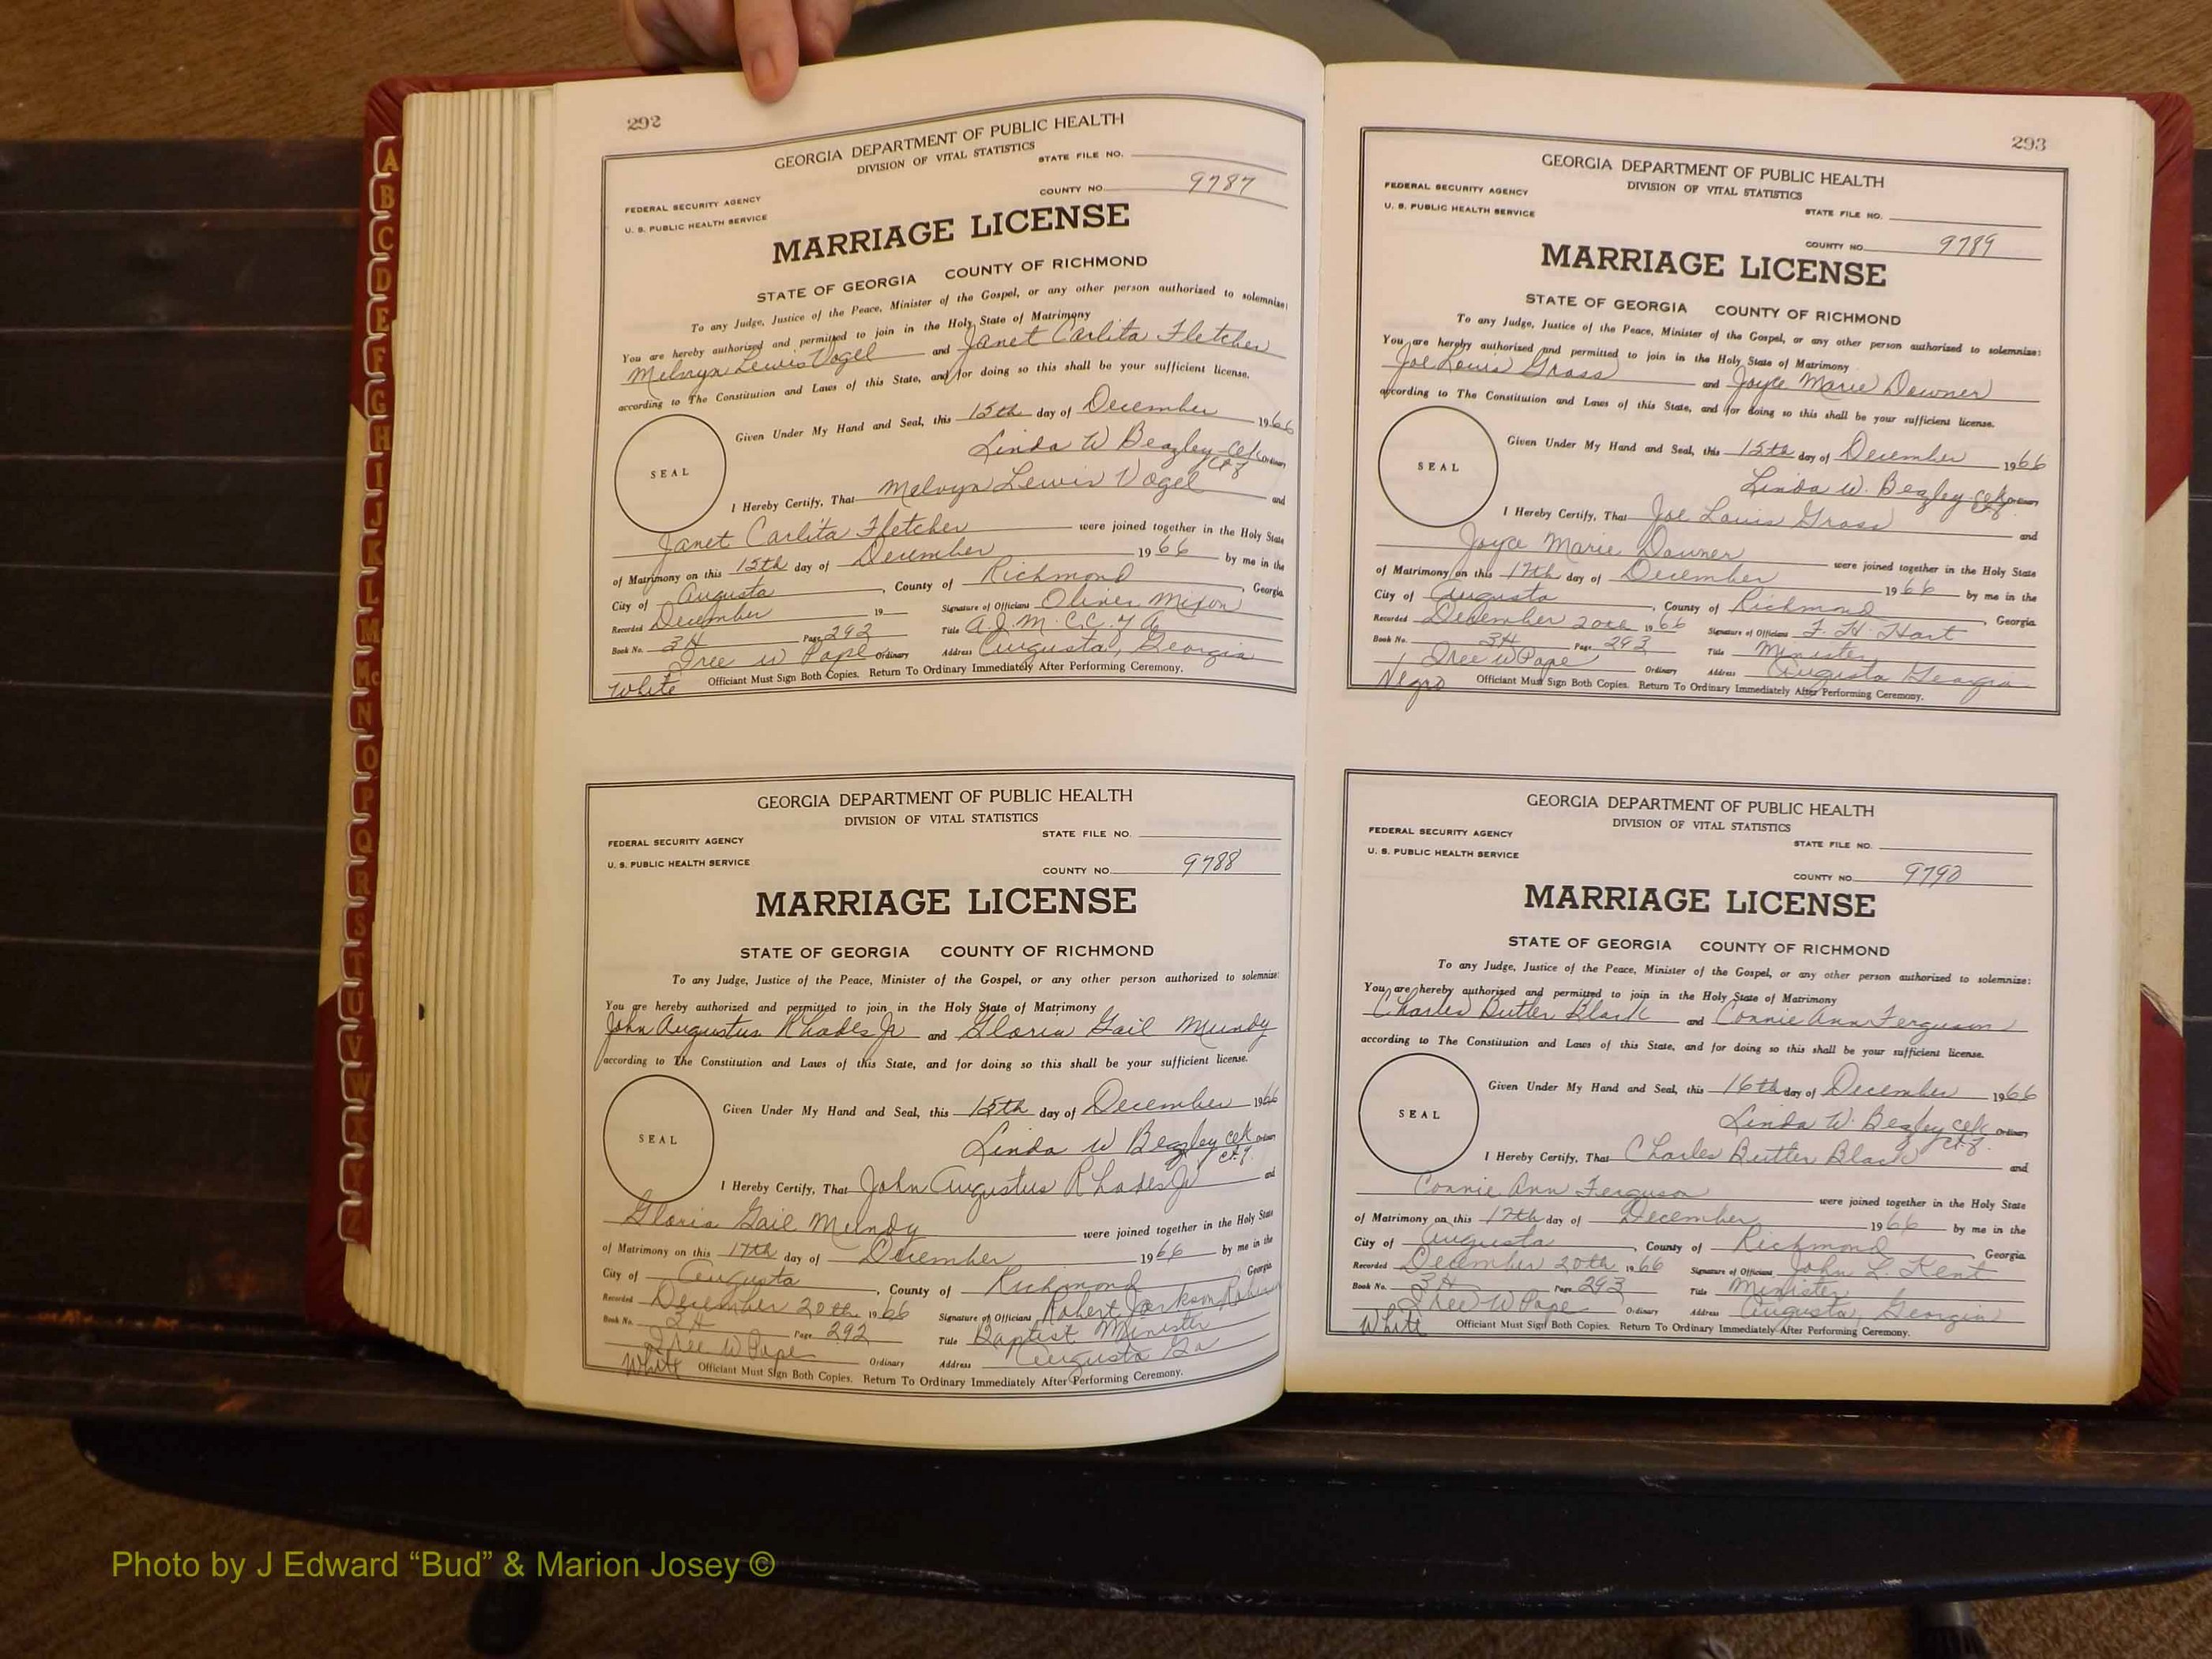 A
B
C
D
E
F
G
H
I
J
K
L
M
Mc
N
O
P
Q
R
S
T
U
V
W
X
Y
Z
292
GEORGIA DEPARTMENT OF PUBLIC HEALTH
DIVISION OF VITAL STATISTICS
STATE FILE NO.
FEDERAL SECURITY AGENCY
U. S. PUBLIC HEALTH SERVICE
COUNTY NO. 9787
MARRIAGE LICENSE
STATE OF GEORGIA COUNTY OF RICHMOND
To any Judge, Justice of the Peace, Minister of the Gospel, or any other person authorized to solemnize:
You are hereby authorized and permitted to join in the Holy State of Matrimony
Melvyn Lewis Vogel and Janet Carlita Fletcher
according to The Constitution and Laws of this State, and for doing so this shall be your sufficient license.
SEAL
Given Under My Hand and Seal, this 15th day of December 1966
Linda W Beazley Clk Ordinary
I Hereby Certify, That Melvyn Lewis Vogel and
Janet Carlita Fletcher were joined together in the Holy State
of Matrimony on this 15th day of December 1966 by me in the
City of Augusta, County of Richmond, Georgia
Recorded December 19 Signature of Officiant Oliver Mixon
Book No. 3H Page 292 Title A.J.M.C.C. of A
Free W Pape Ordinary Address Augusta, Georgia
White Officiant Must Sign Both Copies. Return To Ordinary Immediately After Performing Ceremony.
GEORGIA DEPARTMENT OF PUBLIC HEALTH
DIVISION OF VITAL STATISTICS
STATE FILE NO.
FEDERAL SECURITY AGENCY
U. S. PUBLIC HEALTH SERVICE
COUNTY NO. 9788
MARRIAGE LICENSE
STATE OF GEORGIA COUNTY OF RICHMOND
To any Judge, Justice of the Peace, Minister of the Gospel, or any other person authorized to solemnize:
You are hereby authorized and permitted to join in the Holy State of Matrimony
John Augustus Rhodes Jr and Gloria Gail Mundy
according to The Constitution and Laws of this State, and for doing so this shall be your sufficient license.
SEAL
Given Under My Hand and Seal, this 15th day of December 1966
Linda W Beazley Clk Ordinary
I Hereby Certify, That John Augustus Rhodes Jr and
Gloria Gail Mundy were joined together in the Holy State
of Matrimony on this 17th day of December 1966 by me in the
City of Augusta, County of Richmond Georgia
Recorded December 20th 1966 Signature of Officiant Robert Jackson
Book No. 3H Page 292 Title Baptist Minister
Free W Pape Ordinary Address Augusta Ga
White Officiant Must Sign Both Copies. Return To Ordinary Immediately After Performing Ceremony.
293
GEORGIA DEPARTMENT OF PUBLIC HEALTH
DIVISION OF VITAL STATISTICS
FEDERAL SECURITY AGENCY
U. S. PUBLIC HEALTH SERVICE
STATE FILE NO.
COUNTY NO. 9789
MARRIAGE LICENSE
STATE OF GEORGIA COUNTY OF RICHMOND
To any Judge, Justice of the Peace, Minister of the Gospel, or any other person authorized to solemnize:
You are hereby authorized and permitted to join in the Holy State of Matrimony
Joe Louis Gross and Joyce Marie Downer
according to The Constitution and Laws of this State, and for doing so this shall be your sufficient license.
SEAL
Given Under My Hand and Seal, this 15th day of December 1966
Linda W. Beazley Clk Ordinary
I Hereby Certify, That Joe Louis Gross and
Joyce Marie Downer were joined together in the Holy State
of Matrimony on this 17th day of December 1966 by me in the
City of Augusta, County of Richmond, Georgia
Recorded December 20th 1966 Signature of Officiant F. H. Hart
Book No. 3H Page 293 Title Minister
Free W Pape Ordinary Address Augusta Georgia
Negro Officiant Must Sign Both Copies. Return To Ordinary Immediately After Performing Ceremony.
GEORGIA DEPARTMENT OF PUBLIC HEALTH
DIVISION OF VITAL STATISTICS
FEDERAL SECURITY AGENCY
U. S. PUBLIC HEALTH SERVICE
STATE FILE NO.
COUNTY NO. 9790
MARRIAGE LICENSE
STATE OF GEORGIA COUNTY OF RICHMOND
To any Judge, Justice of the Peace, Minister of the Gospel, or any other person authorized to solemnize:
You are hereby authorized and permitted to join in the Holy State of Matrimony
Charles Butler Black and Connie Ann Ferguson
according to The Constitution and Laws of this State, and for doing so this shall be your sufficient license.
SEAL
Given Under My Hand and Seal, this 16th day of December 1966
Linda W. Beazley Clk Ordinary
I Hereby Certify, That Charles Butler Black and
Connie Ann Ferguson were joined together in the Holy State
of Matrimony on this 17th day of December 1966 by me in the
City of Augusta, County of Richmond, Georgia
Recorded December 20th 1966 Signature of Officiant John L. Kent
Book No. 3H Page 293 Title Minister
Free W Pape Ordinary Address Augusta, Georgia
White Officiant Must Sign Both Copies. Return To Ordinary Immediately After Performing Ceremony.
Photo by J Edward “Bud” & Marion Josey ©